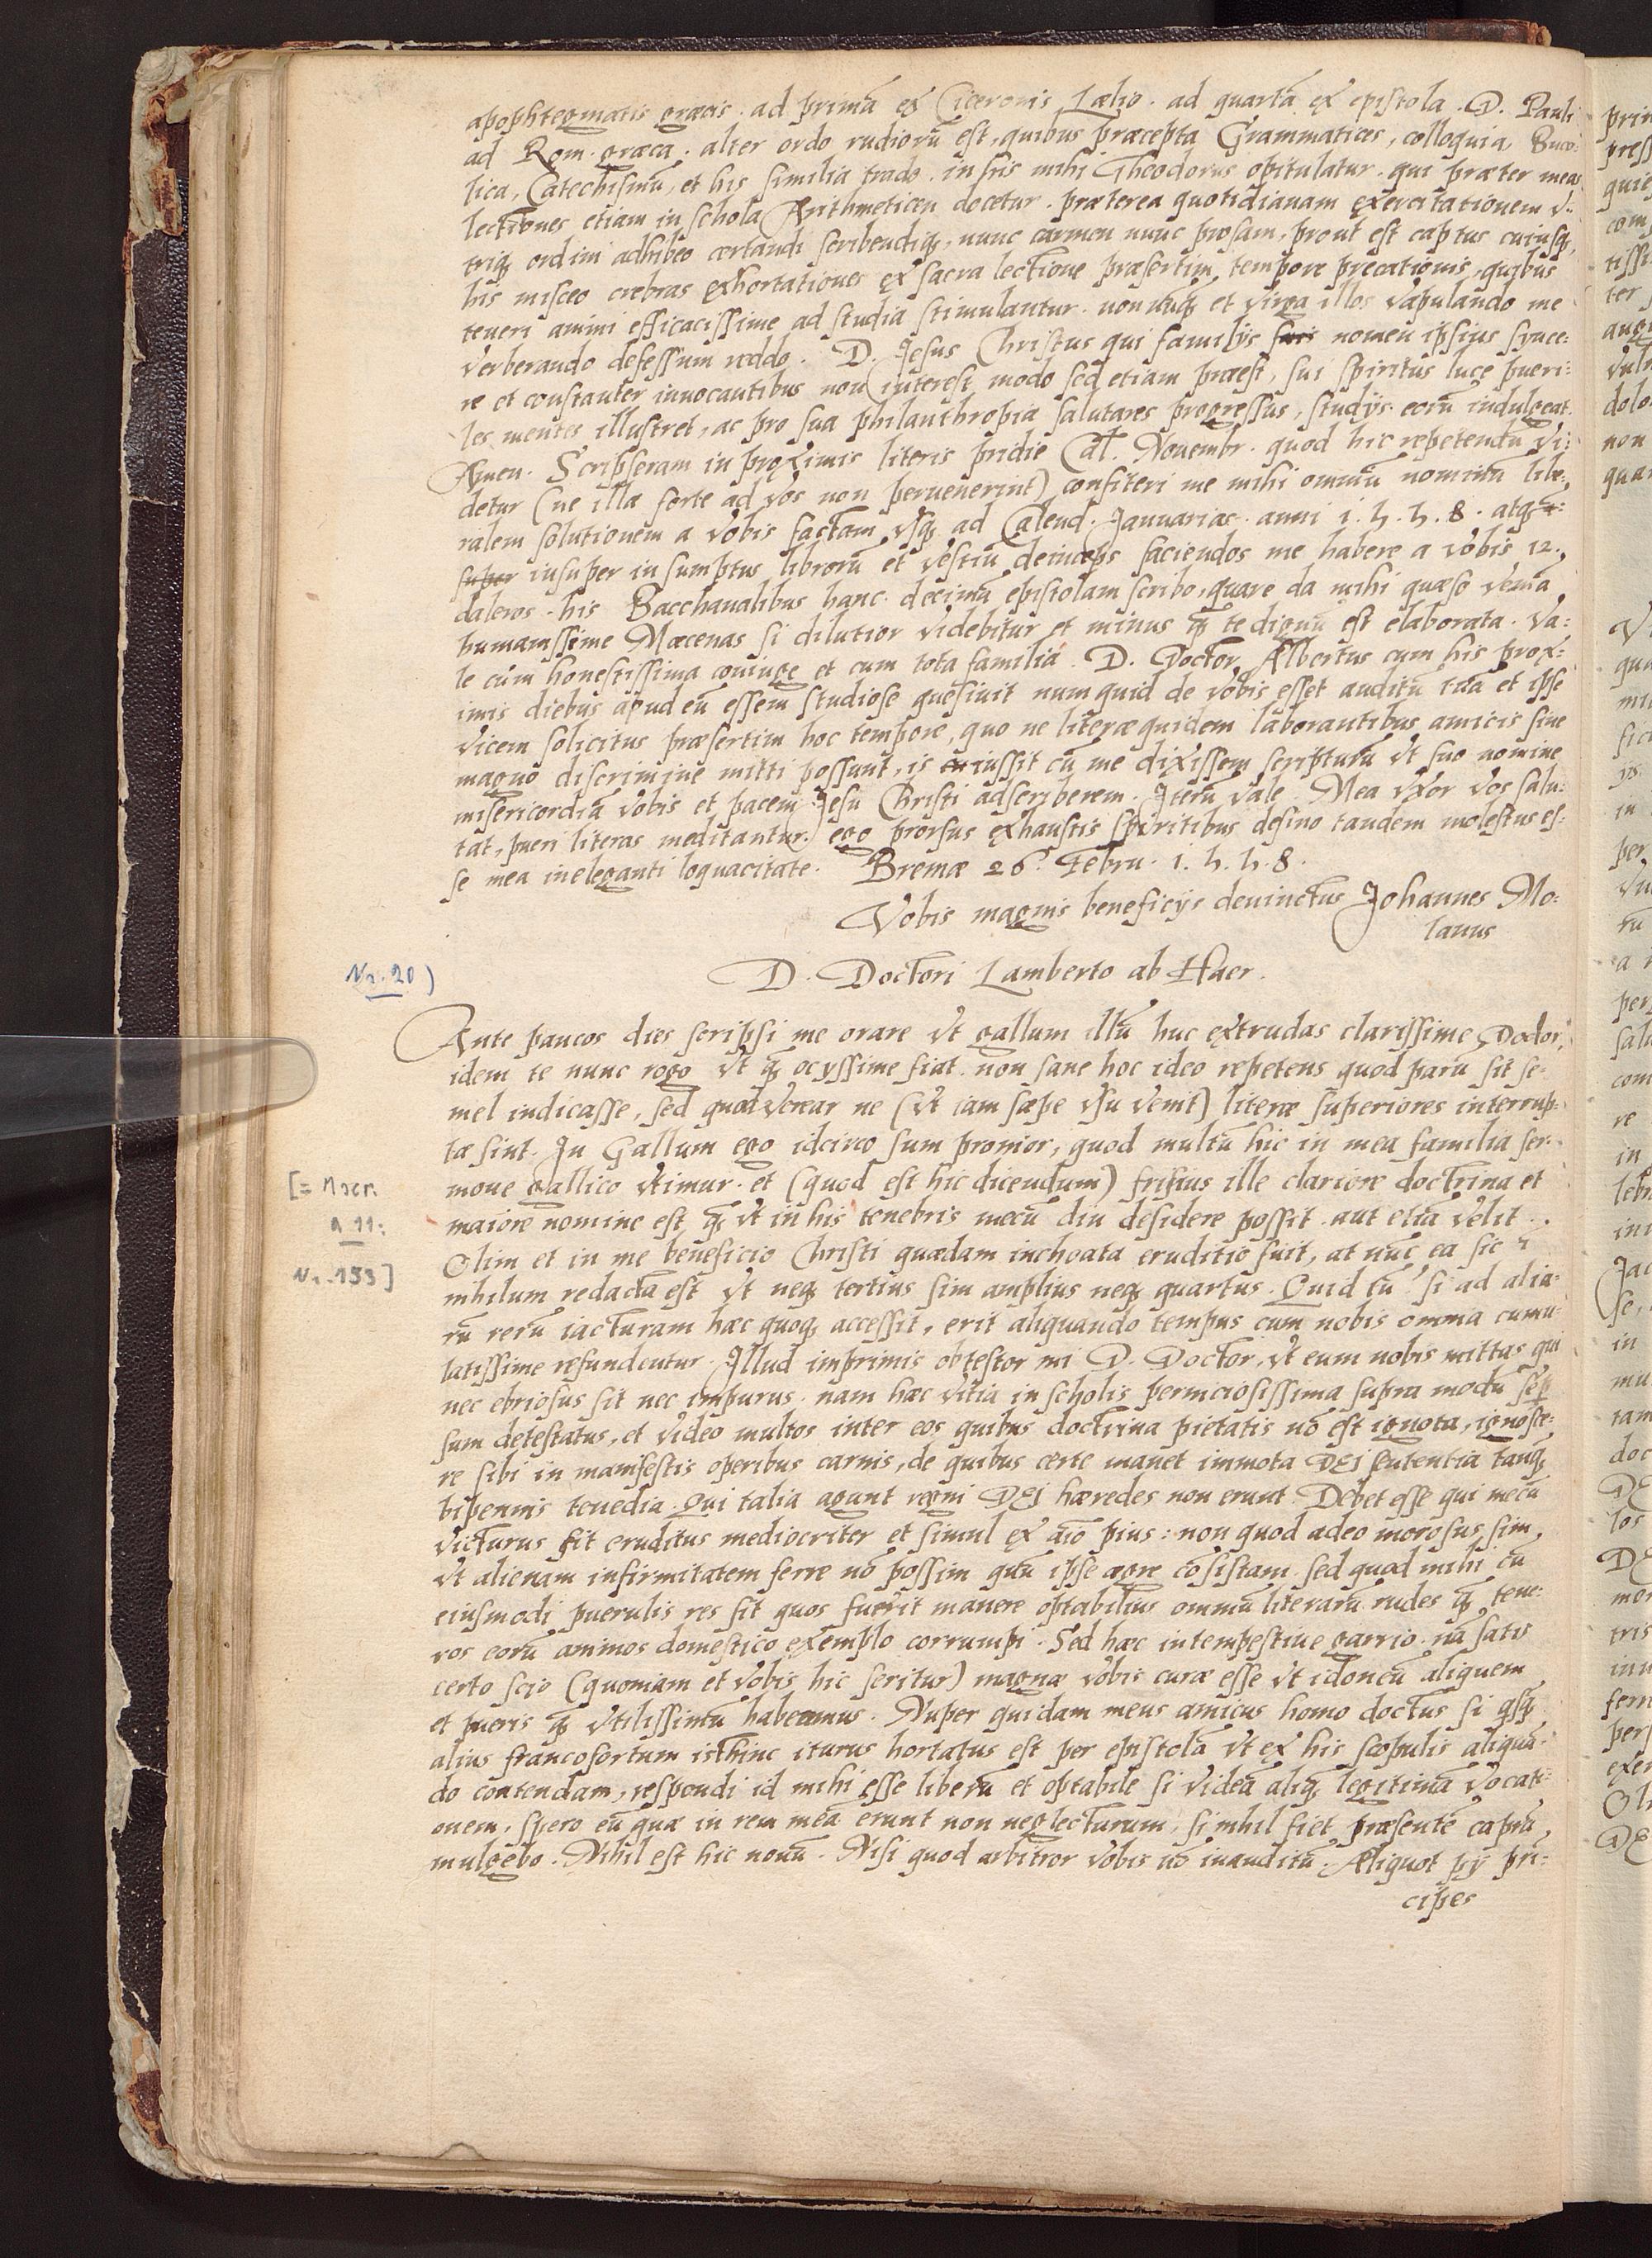 apophtegmatis græcis. ad primā ex Ciceronis Lælio. ad quartā ex epistola. D. Pauli
ad Rom. græca. alter ordo rudiorū est, quibus præcepta Grammatices, colloquia, Buco:
lica, Catechismū, et his similia trado. in his mihi Theodorus opitulatur. qui præter meas
lectiones etiam in schola Arithmeticen docetur. præterea quotidianam exercitationem v:
triq; ordini adhibeo certandi scribendiq;, nunc carmen nunc prosam, prout est captus cuiusq;
his misceo crebras exhortationes ex sacra lectione præsertim, tempore precationis, quibus
teneri animi efficacissime ad studia stimulantur. nonnūq; et virga illos vapulando me
verberando defessum reddo. D. Jesus Christus qui familijs suis nomen ipsius synce:
re et constanter inuocantibus non interest modo sed etiam præest, sui spiritus luce pueri:
les mentes illustret, ac pro sua philanthropia salutares progressus, studijs eorū indulgeat.
Amen. Scripseram in proximis literis pridie Cal. Nouembr. quod hic repetendū vi:
detur (ne illæ forte ad vos non peruenerint) confiteri me mihi omniū nominū libe:
ralem solutionem a vobis factam vsq; ad Calend. Januarias. anni 1. 5. 5. 8. atq;
super insuper in sumptus librorū et vestiū deinceps faciendos me habere a vobis 12.
daleros. his Bacchanalibus hanc decimū epistolam scribo, quare da mihi quæso veniā
humanissime Mæcenas si dilutior videbitur et minus q; te dignū est elaborata. Va:
le cum honestissima coniuge et cum tota familia. D. Doctor Albertus cum his prox:
imis diebus apud eū essem studiose quesiuit num quid de vobis esset auditū tua et ipse
vicem solicitus præsertim hoc tempore, quo ne literæ quidem laborantibus amicis sine
magno discrimine mitti possunt, is iussit cū me dixissem scripturū vt suo nomine
misericordiā vobis et pacem Jesu Christi adscriberem. Iterū vale. Mea vxor vos salu:
tat, pueri literas meditantur. ego prorsus exhaustis spiritibus desino tandem molestus es:
se mea ineleganti loquacitate. Bremæ 26. Febru. 1. 5. 5. 8.
Vobis magnis beneficijs deuinctus Johannes Mo:
lanus
Nr. 20)
D. Doctori Lamberto ab Haer.
Ante paucos dies scripsi me orare vt gallum illū huc extrudas clarissime Doctor,
idem te nunc rogo vt q; ocyssime fiat. non sane hoc ideo repetens quod parū sit se:
mel indicasse, sed quod verear ne (vt iam sæpe vsu venit) literæ superiores interrup:
tæ sint. In Gallum ego idcirco sum pronior, quod multū hic in mea familia ser:
mone gallico vtimur. et (quod est hic dicendum) frisius ille clariore doctrina et
maiore nomine est q; vt in his tenebris mecū diu desidere possit. aut etiā velit.
[= Mscr.
a 11:
Nr. 153]
Olim et in me beneficio Christi quædam inchoata eruditio fuit, at nūc ea sic ī
nihilum redacta est vt neq; tertius sim amplius neq; quartus. Quid tū? si ad alia:
rū rerū iacturam hæc quoq; accessit, erit aliquando tempus cum nobis omnia cumu:
latissime refundentur. Illud imprimis obtestor mi D. Doctor, vt eum nobis mittas qui
nec ebriosus sit nec impurus. nam hæc vitia in scholis perniciosissima supra modū sēp
sum detestatus, et video multos inter eos quibus doctrina pietatis nō est ignota, ignosce:
re sibi in manifestis operibus carnis, de quibus certe manet immota DEI sententia tanq;
bipennis tenedia. Qui talia agunt regni DEI hæredes non erunt. Debet esse qui mecū
victurus sit eruditus mediocriter et simul ex aīo pius: non quod adeo morosus sim,
vt alienam infirmitatem ferre nō possim quū ipse ægre cōsistam. sed quod mihi cū
eiusmodi puerulis res sit quos fuerit manere optabilius omniū literarū rudes q; tene:
ros eorū animos domestico exemplo corrumpi. Sed hæc intempestiue garrio. nā satis
certo scio (quoniam et vobis hic seritur) magnæ vobis curæ esse vt idoneū aliquem
et pueris q; vtilissimū habeamus. Nuper quidam meus amicus homo doctus si qsq;
alius francofortum isthinc iturus hortatus est per epistolā vt ex his scopulis aliquā:
do contendam, respondi id mihi esse liberū et optabile si videā aliq; legitimā vocati:
onem, spero eū quæ in rem meā erunt non neglecturum, si nihil fiet præsentē caprā
mulgebo. Nihil est hic nouū. Nisi quod arbitror vobis nō inauditū. Aliquot pij pri:
cipes